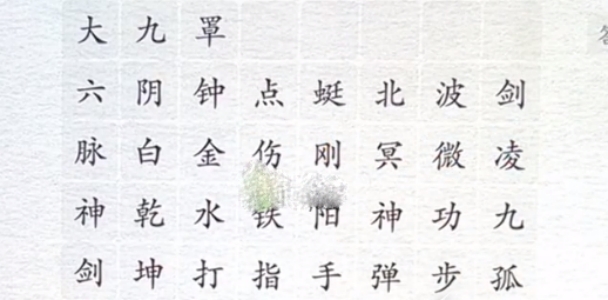 大九罩
六阴钟点蜓北波剑
脉白金伤刚冥微凌
神乾水铁阳神功九
剑坤打指手弹步孤